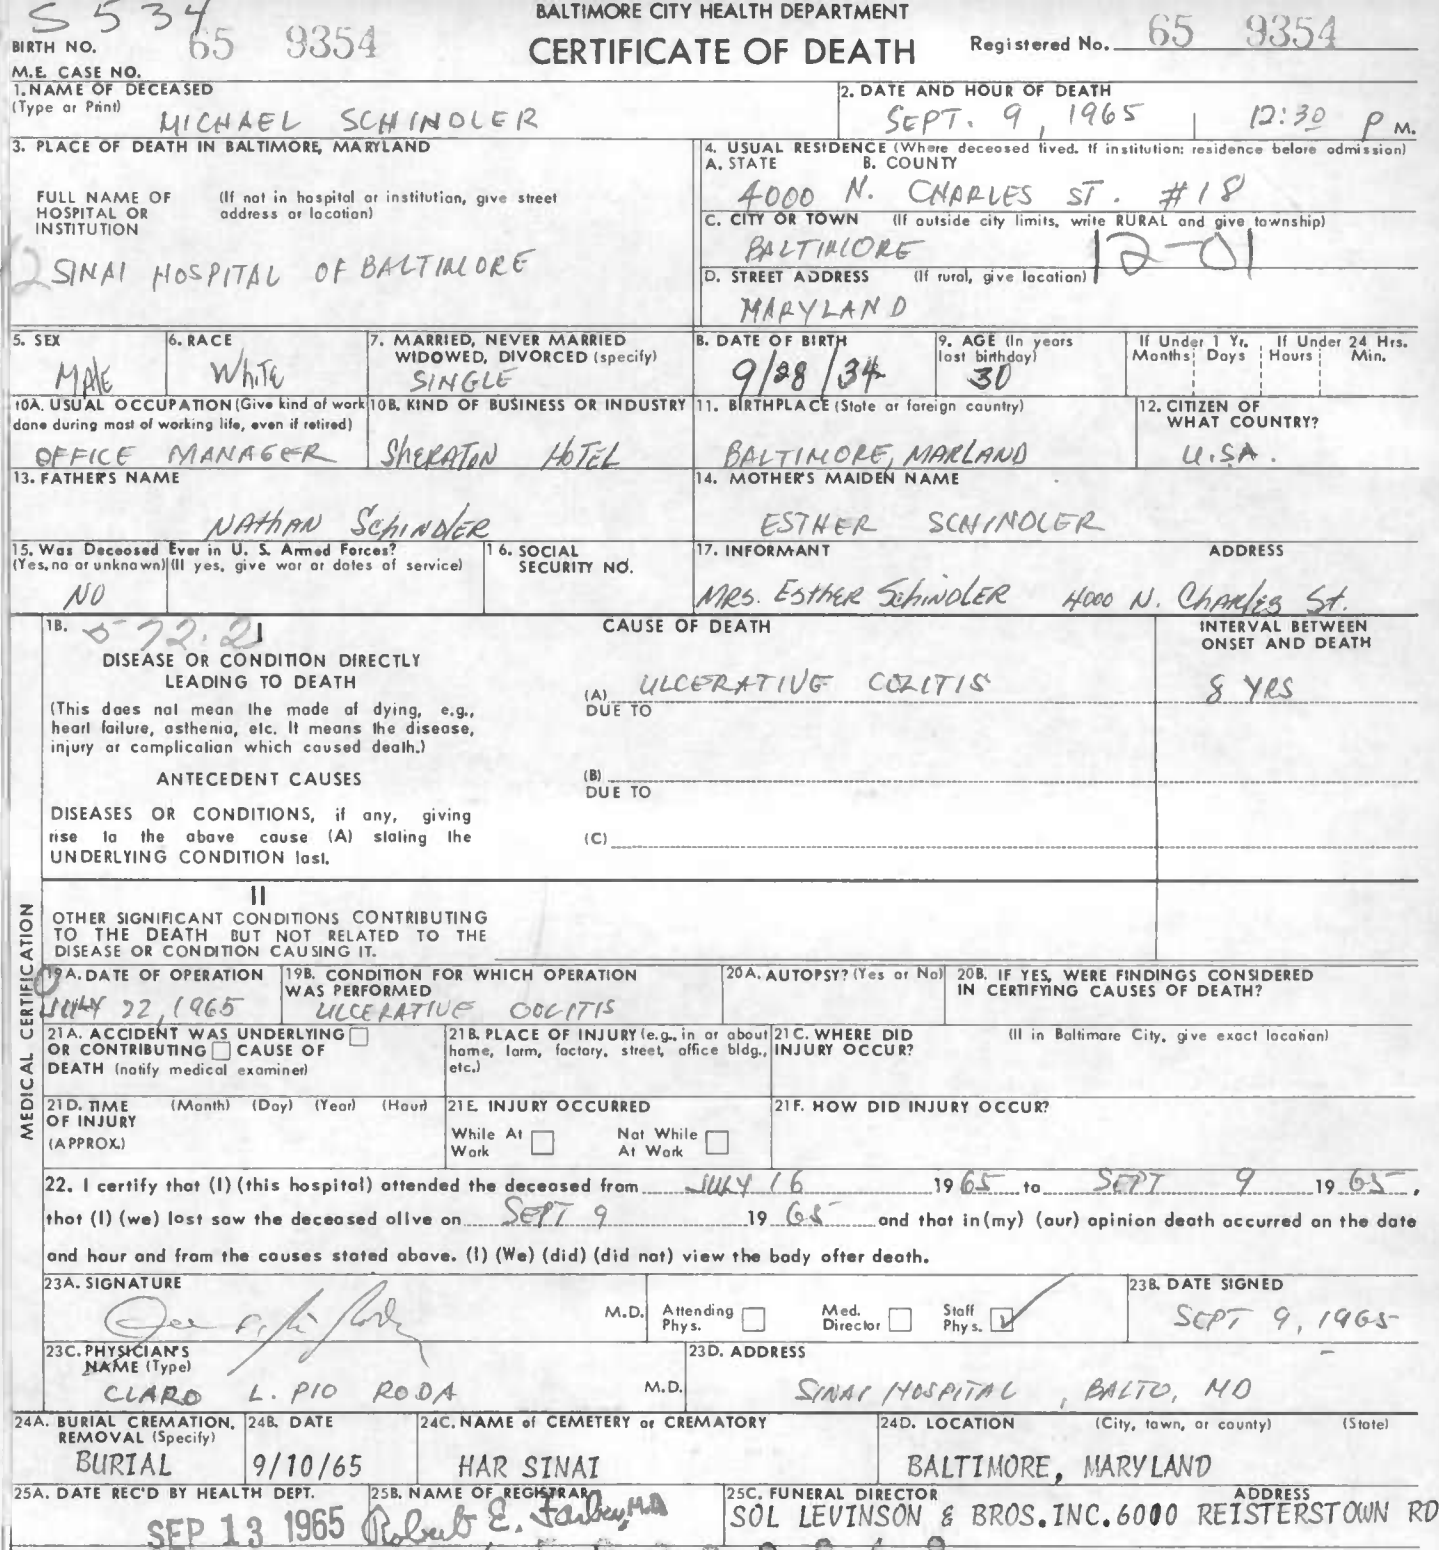 S 534
BALTIMORE CITY HEALTH DEPARTMENT
BIRTH NO. 65 9354
CERTIFICATE OF DEATH
Registered No. 65 9354
M.E. CASE NO.
1. NAME OF DECEASED
(Type or Print)
MICHAEL SCHINDLER
2. DATE AND HOUR OF DEATH
SEPT. 9, 1965 | 12:30 P M.
3. PLACE OF DEATH IN BALTIMORE, MARYLAND
FULL NAME OF HOSPITAL OR INSTITUTION
(If not in hospital or institution, give street address or location)
SINAI HOSPITAL OF BALTIMORE
4. USUAL RESIDENCE (Where deceased lived. If institution: residence before admission)
A. STATE B. COUNTY
4000 N. CHARLES ST. #18
C. CITY OR TOWN (If outside city limits, write RURAL and give township)
BALTIMORE 12-01
D. STREET ADDRESS (If rural, give location)
MARYLAND
5. SEX
MALE
6. RACE
White
7. MARRIED, NEVER MARRIED
WIDOWED, DIVORCED (specify)
SINGLE
8. DATE OF BIRTH
9/28/34
9. AGE (In years
last birthday)
30
If Under 1 Yr.
Months Days
If Under 24 Hrs.
Hours Min.
10A. USUAL OCCUPATION (Give kind of work
done during most of working life, even if retired)
OFFICE MANAGER
10B. KIND OF BUSINESS OR INDUSTRY
SHERATON HOTEL
11. BIRTHPLACE (State or foreign country)
BALTIMORE, MARLAND
12. CITIZEN OF
WHAT COUNTRY?
U.SA.
13. FATHER'S NAME
NATHAN SCHINDLER
14. MOTHER'S MAIDEN NAME
ESTHER SCHINDLER
15. Was Deceased Ever in U. S. Armed Forces?
(Yes, no or unknown) (If yes, give war or dates of service)
NO
16. SOCIAL
SECURITY NO.
17. INFORMANT ADDRESS
MRS. ESTHER SCHINDLER 4000 N. CHARLES St.
18. 572.2 I
DISEASE OR CONDITION DIRECTLY
LEADING TO DEATH
(This does not mean the mode of dying, e.g.,
heart failure, asthenia, etc. It means the disease,
injury or complication which caused death.)
ANTECEDENT CAUSES
DISEASES OR CONDITIONS, if any, giving
rise to the above cause (A) stating the
UNDERLYING CONDITION last.
CAUSE OF DEATH
(A) ULCERATIVE COLITIS
DUE TO
(B)
DUE TO
(C)
INTERVAL BETWEEN
ONSET AND DEATH
8 YRS
MEDICAL CERTIFICATION
II
OTHER SIGNIFICANT CONDITIONS CONTRIBUTING
TO THE DEATH BUT NOT RELATED TO THE
DISEASE OR CONDITION CAUSING IT.
19A. DATE OF OPERATION
JULY 22, 1965
19B. CONDITION FOR WHICH OPERATION
WAS PERFORMED
ULCERATIVE COLITIS
20A. AUTOPSY? (Yes or No)
20B. IF YES, WERE FINDINGS CONSIDERED
IN CERTIFYING CAUSES OF DEATH?
21A. ACCIDENT WAS UNDERLYING
OR CONTRIBUTING CAUSE OF
DEATH (notify medical examiner)
21B. PLACE OF INJURY (e.g., in or about
home, farm, factory, street, office bldg.,
etc.)
21C. WHERE DID
INJURY OCCUR?
(If in Baltimore City, give exact location)
21D. TIME
OF INJURY
(APPROX.)
(Month) (Day) (Year) (Hour)
21E. INJURY OCCURRED
While At
Work
Not While
At Work
21F. HOW DID INJURY OCCUR?
22. I certify that (I) (this hospital) attended the deceased from JULY 16 1965 to SEPT 9 1965,
that (I) (we) last saw the deceased alive on SEPT 9 1965 and that in (my) (our) opinion death occurred on the date
and hour and from the causes stated above. (I) (We) (did) (did not) view the body after death.
23A. SIGNATURE
M.D.
Attending
Phys.
Med.
Director
Staff
Phys.
23B. DATE SIGNED
SEPT 9, 1965
23C. PHYSICIAN'S
NAME (Type)
CLARO L. PIO RODA M.D.
23D. ADDRESS
SINAI HOSPITAL, BALTO, MD
24A. BURIAL CREMATION,
REMOVAL (Specify)
BURIAL
24B. DATE
9/10/65
24C. NAME of CEMETERY or CREMATORY
HAR SINAI
24D. LOCATION (City, town, or county) (State)
BALTIMORE, MARYLAND
25A. DATE REC'D BY HEALTH DEPT.
SEP 13 1965
25B. NAME OF REGISTRAR
Robert E. Farber, M.D.
25C. FUNERAL DIRECTOR ADDRESS
SOL LEVINSON & BROS. INC. 6000 REISTERSTOWN RD